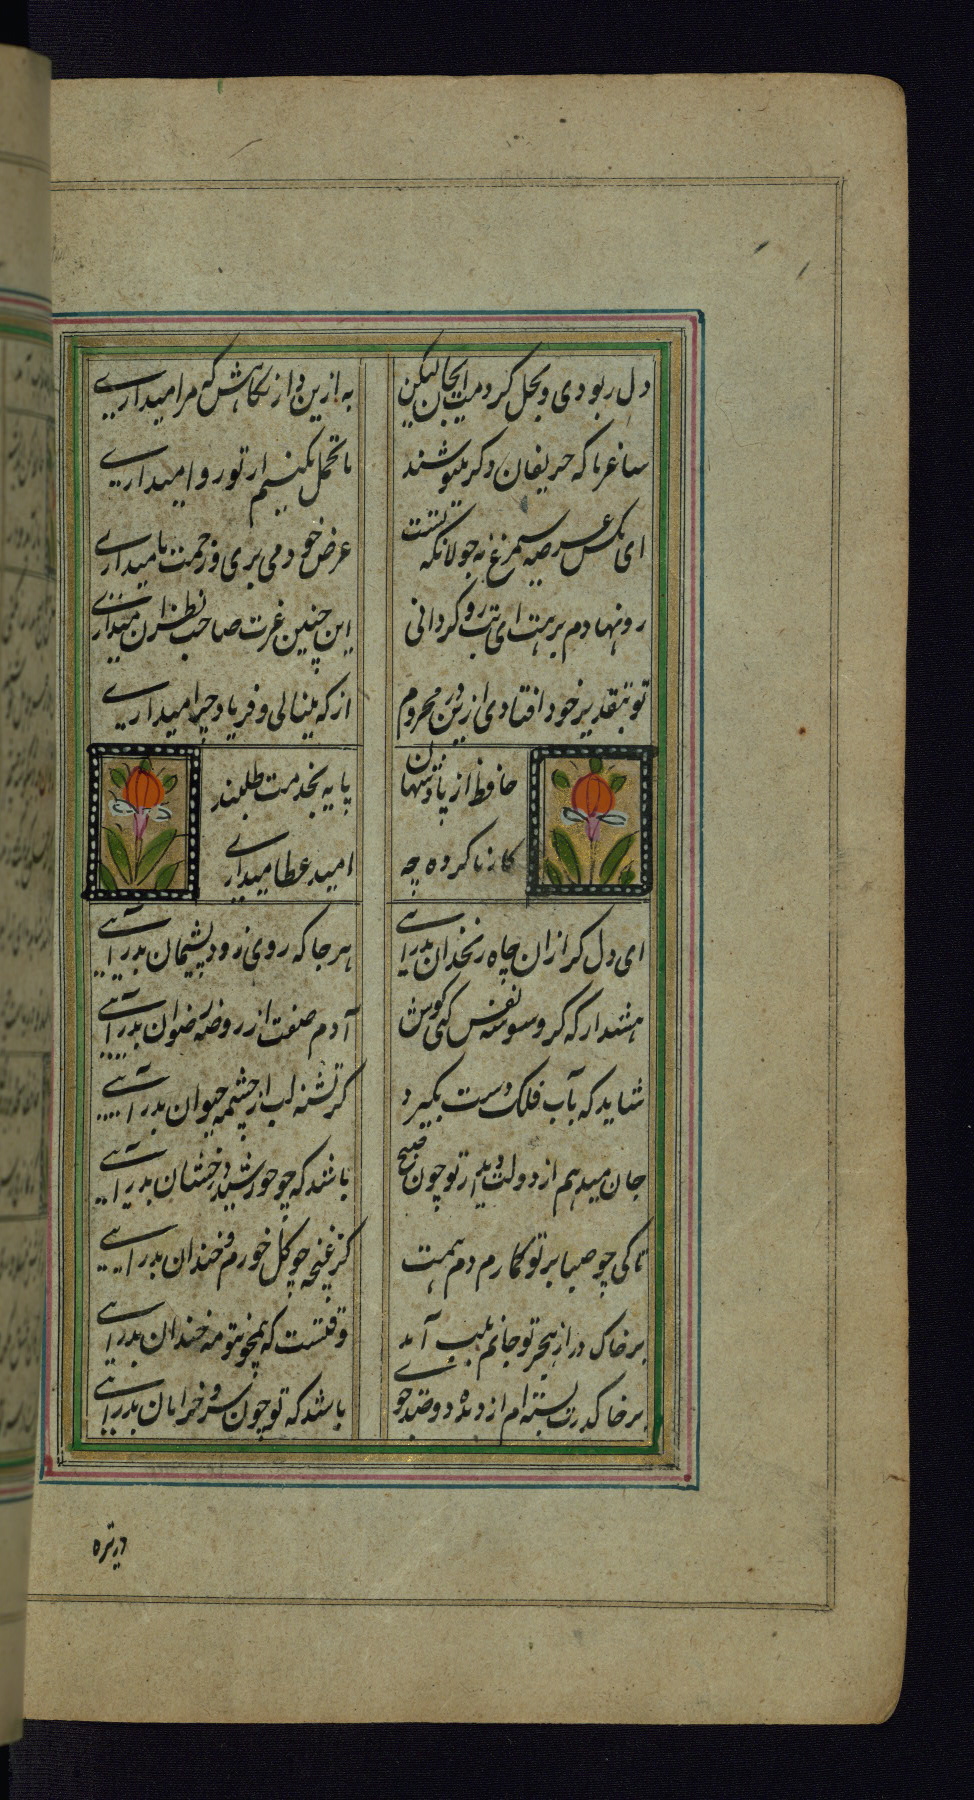 دل ربودی و بحل کردمت ایجان لیکن
به ازین دار نگاهش که مرا میداری
ساغر ما که حریفان دکر مینوشند
ما تحمل نکنیم ار تو روا میداری
ای مکس عرصه سیمرغ نه جولانکه تست
عرض خود می بری و زحمت ما میداری
تو بتقدیر خود افتادی ازین در محروم
از که مینالی و فریاد چرا میداری
حافظ از پادشهان
پایه بخدمت طلبند
کار ناکرده چه
امید عطا میداری
ای دل کر ازان چاه زنخدان بدر آیی
هر جا که روی زود پشیمان بدر آیی
هشدار که کر وسوسه نفس کنی کوش
آدم صفت از روضه رضوان بدر آیی
شاید که بآب فلکت دست نکیرد
کر تشنه لب از چشمه حیوان بدر آیی
جان میدهم از دولت دیدار تو چون صبح
باشد که چو خورشید درخشان بدر آیی
تا کی چو صبا بر تو کمارم دم همت
کز غنچه چو کل خورم و خندان بدر آیی
وقتست که همچو مه خندان بدر آیی
بر خاک درت بسته ام از دیده دو صد جوی
باشد که تو چون سرو خرامان بدر آیی